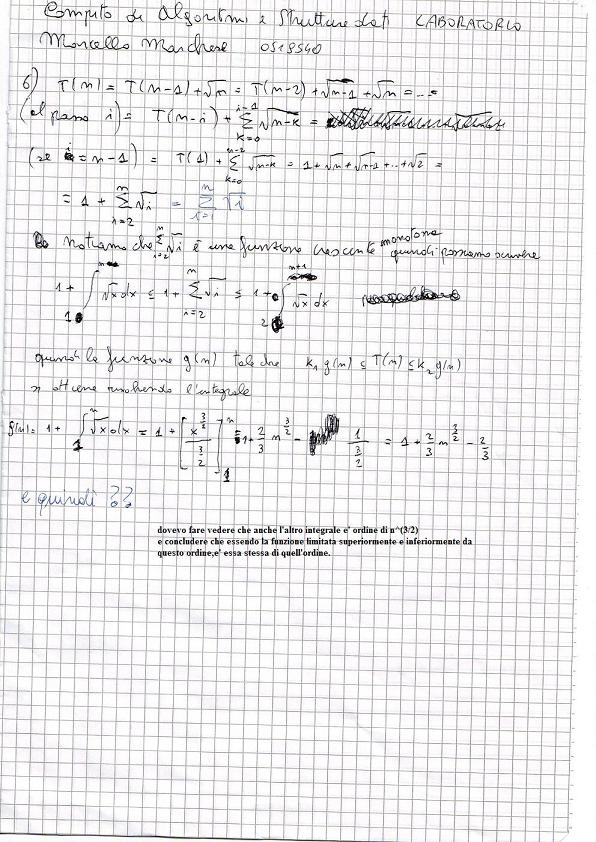 Compito di Algoritmi e Strutture dati LABORATORIO
Marcello Marchese 0519540
6) T(n) = T(n-1) + √n = T(n-2) + √n-1 + √n = ... =
(al passo i) = T(n-i) + Σ_{k=0}^{i-1} √n-k =
(se i = n-1) = T(1) + Σ_{k=0}^{n-2} √n-k = 1 + √n + √n-1 + ... + √2 =
= 1 + Σ_{i=2}^{n} √i = Σ_{i=1}^{n} √i
notiamo che Σ_{i=2}^{n} √i è una funzione crescente monotona quindi possiamo scrivere
1 + ∫_{1}^{n} √x dx ≤ 1 + Σ_{i=2}^{n} √i ≤ 1 + ∫_{2}^{n+1} √x dx
quindi la funzione g(n) tale che k₁ g(n) ≤ T(n) ≤ k₂ g(n)
si ottiene risolvendo l'integrale
g(n) = 1 + ∫_{1}^{n} √x dx = 1 + [x^{3/2} / (3/2)]_{1}^{n} = 1 + 2/3 n^{3/2} - 1/(3/2) = 1 + 2/3 n^{3/2} - 2/3
e quindi ??
dovevo fare vedere che anche l'altro integrale e' ordine di n^(3/2)
e concludere che essendo la funzione limitata superiormente e inferiormente da
questo ordine,e' essa stessa di quell'ordine.